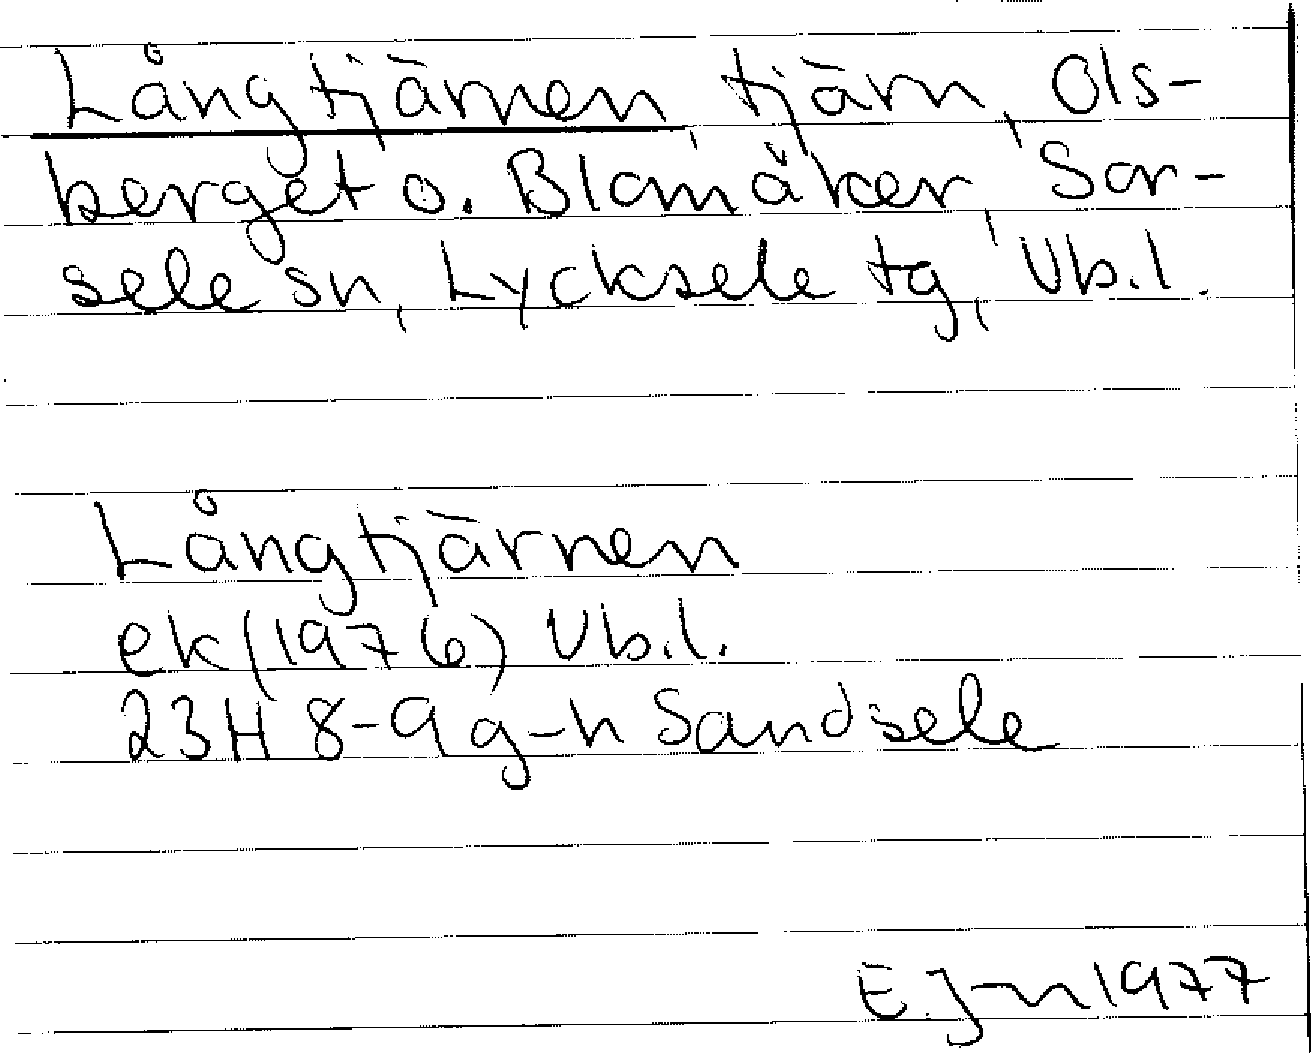 Långtjärnen, tjärn, Ols-
berget o. Blomåker, Sor-
sele sn, Lycksele tg, Vb.l.
Långtjärnen
ek (1976) Vb.l.
23H 8-9 g-h Sandsele
E. J-n 1977